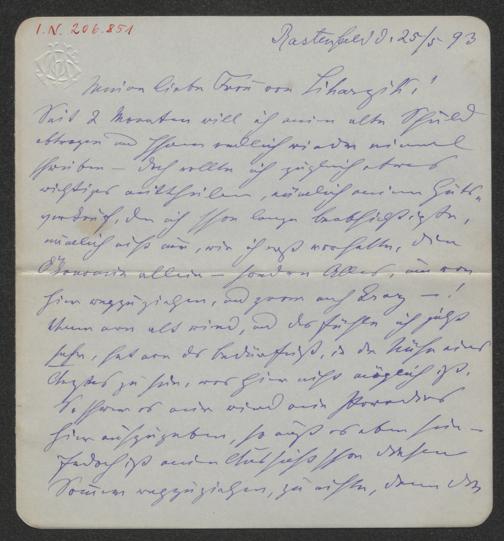 I.N. 206.851
Rastenfeld d. 25/5 93
Meine liebe Frau von Littrow!
Seit 2 Monaten will ich meine alte Schuld
abtragen und Ihnen endlich wieder einmal
schreiben — doch wollte ich zugleich etwas
wichtiges mittheilen, nämlich meinen Guts-
verkauf, den ich schon lange beabsichtigte,
nämlich nicht nur, wie ich
Ökonomie allein — sondern Alles, um von
hier wegzuziehen, und zwar nach Graz —!
Wenn man alt wird, und das fühle ich jetzt
sehr, hat man das Bedürfniß, in der Nähe eines
Arztes zu sein, was hier nicht möglich ist.
So schwer es mir wird mein Paradies
hier aufzugeben, so muß es eben sein —
Jedoch ist meine Aussicht schon diesen
Sommer wegzuziehen, zu nichte, denn der